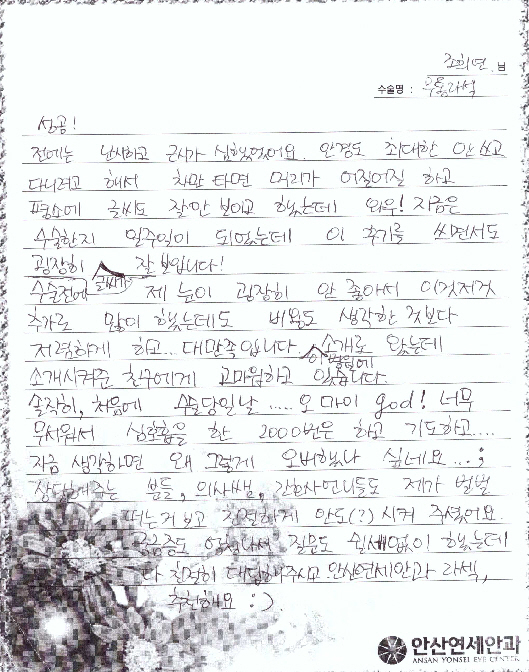 조희연 님
수술명 : 무통라섹
성공!
전에는 난시하고 근시가 심했었어요. 안경도 최대한 안쓰고
다니려고 해서 차만 타면 머리가 어질어질 하고
평소에 글씨도 잘 안 보이고 했는데 와우! 지금은
수술한지 일주일이 되었는데 이 후기를 쓰면서도
굉장히 글씨가 잘 보입니다!
수술전에 제 눈이 굉장히 안 좋아서 이것저것
추가로 많이 했는데도 비용도 생각한 것보다
저렴하게 하고... 대만족입니다. 이 병원에 소개로 왔는데
소개시켜준 친구에게 고마워하고 있습니다.
솔직히, 처음에 수술당일날 ..... 오 마이 god! 너무
무서워서 심호흡을 한 2000번은 하고 기도하고....
지금 생각하면 왜 그렇게 오버했나 싶네요...;
상담해주는 분들, 의사쌤, 간호사언니들도 제가 벌벌
떠는거 보고 친절하게 안도(?)시켜 주셨어요.
궁금증도 질문도 쉴새없이 했는데
다 친절히 대답해주시고 안산연세안과 라섹,
추천해요 :)
안산연세안과
ANSAN YONSEI EYE CENTER